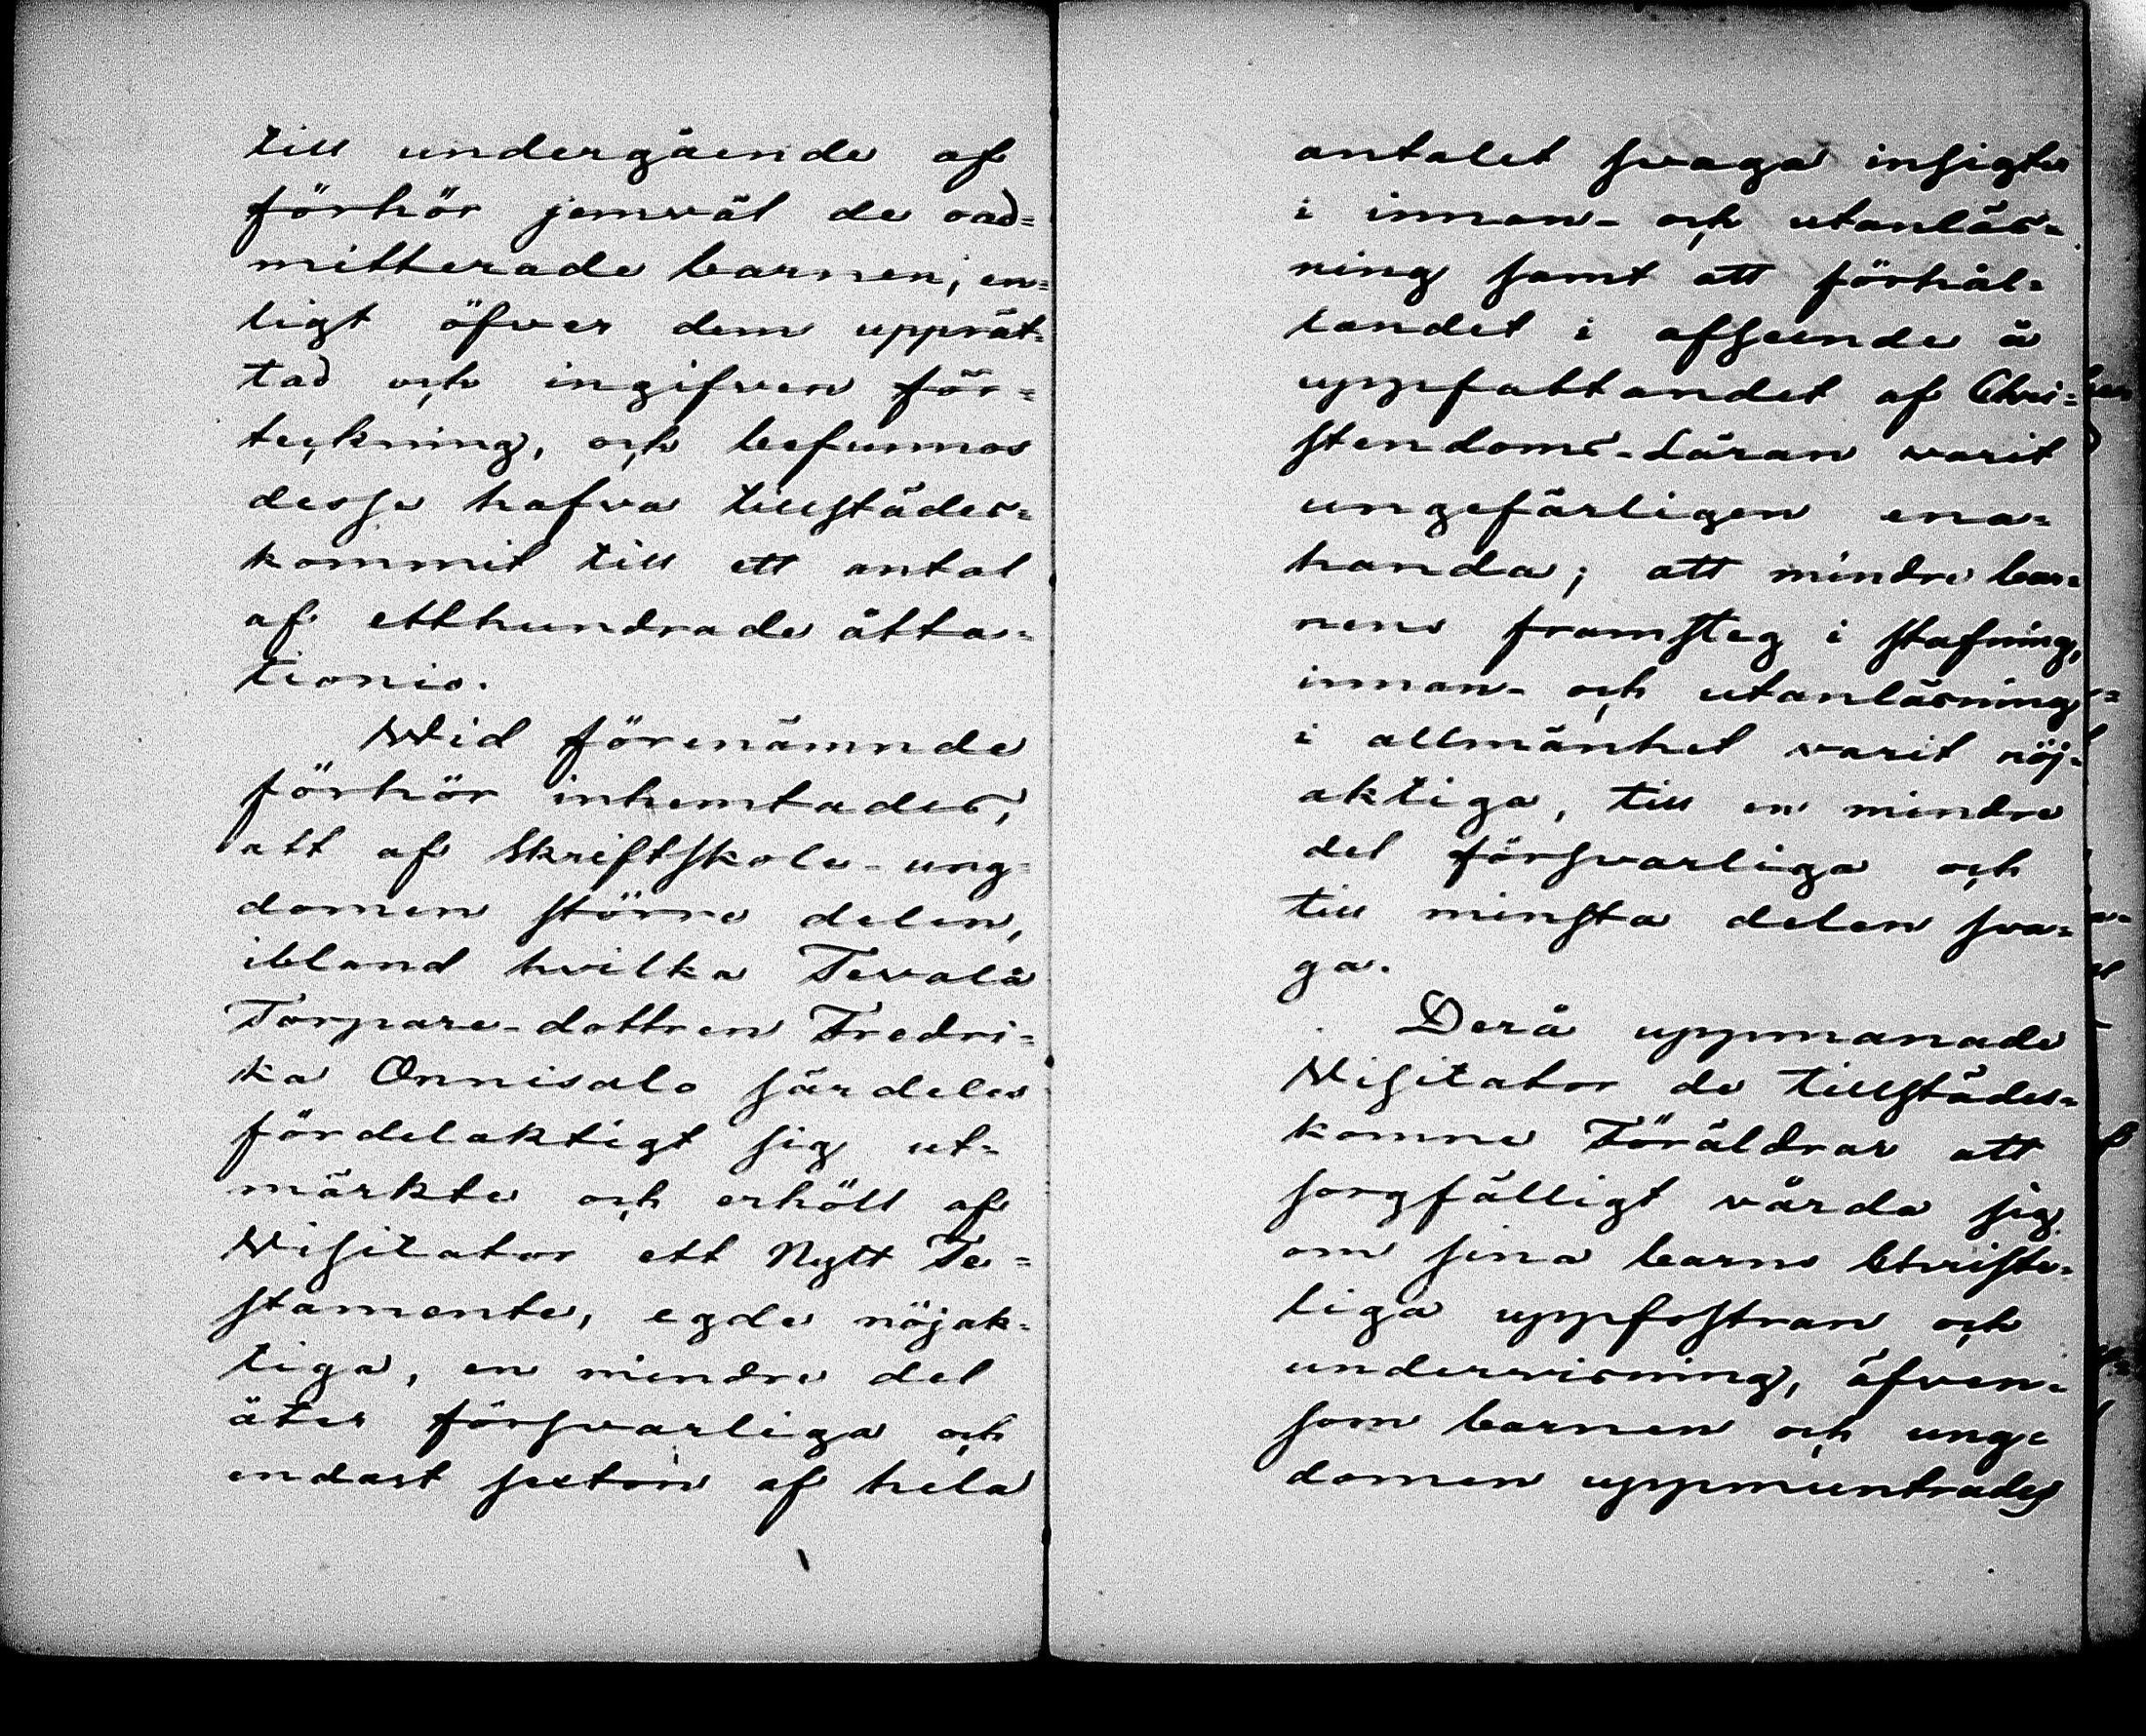 till undergående af
förhör jemväl de oad=
mitterade barnen, en=
ligt öfver dem upprät=
tad och ingifven för=
teckning, och befunnos
desse hafva tillstädes=
kommit till ett antal
af etthundrade åtta=
tionio.
Wid förenämnde
förhör inhemtades,
att af Skriftskole-ung=
domen större delen,
ibland hvilka Tervala
Torpare-dottren Fredri=
ka Onnisalo särdeles
fördelaktigt sig ut=
märkte och erhöll af
Visitator ett Nytt Te=
stamente, egde nöjak=
tiga, en mindre del
åter försvarliga och
endast sexton af hela
antalet svaga insigter
i innan- och utanläs=
ning samt att förhål=
landet i afseende å
uppfattandet af Chri=
stendoms-Läran varit
ungefärligen ena=
handa; att mindre bar=
nens framsteg i stafning,
innan- och utanläsning
i allmänhet varit nöj=
aktiga, till en mindre
del försvarliga och
till minsta delen sva=
ga.
Derå uppmanade
Visitator de tillstädes=
komne Föräldrar att
sorgfälligt vårda sig
om sina barns Christe=
liga uppfostran och
undervisning, äfven=
som barnen och ung=
domen uppmuntrades